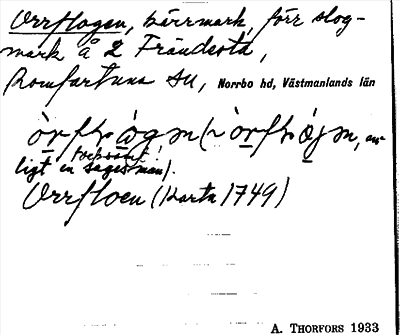 Orrflogen, kärrmark, förr slog-
mark å 2 Frändesta,
Romfartuna sn, Norrbo hd, Västmanlands län
ligt en sagesman).
Orrfloen (Karta 1749)
A. THORFORS 1933